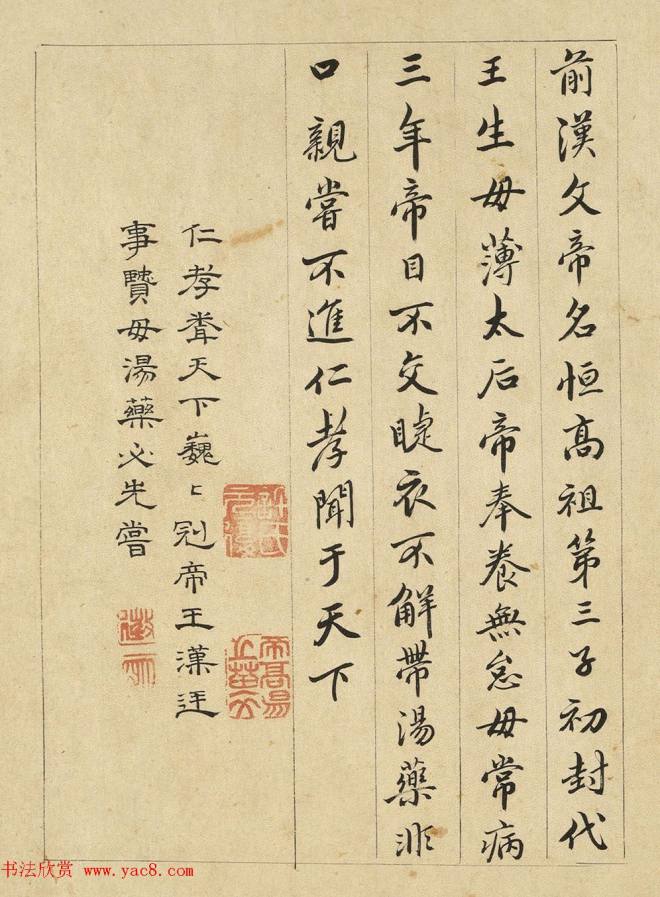 前漢文帝名恒高祖第三子初封代
王生母薄太后帝奉養無怠母常病
三年帝目不交睫衣不解帶湯藥非
口親嘗不進仁孝聞于天下
仁孝聞天下巍〻冠帝王漢廷
事賢母湯藥必先嘗
书法欣赏 www.yac8.com